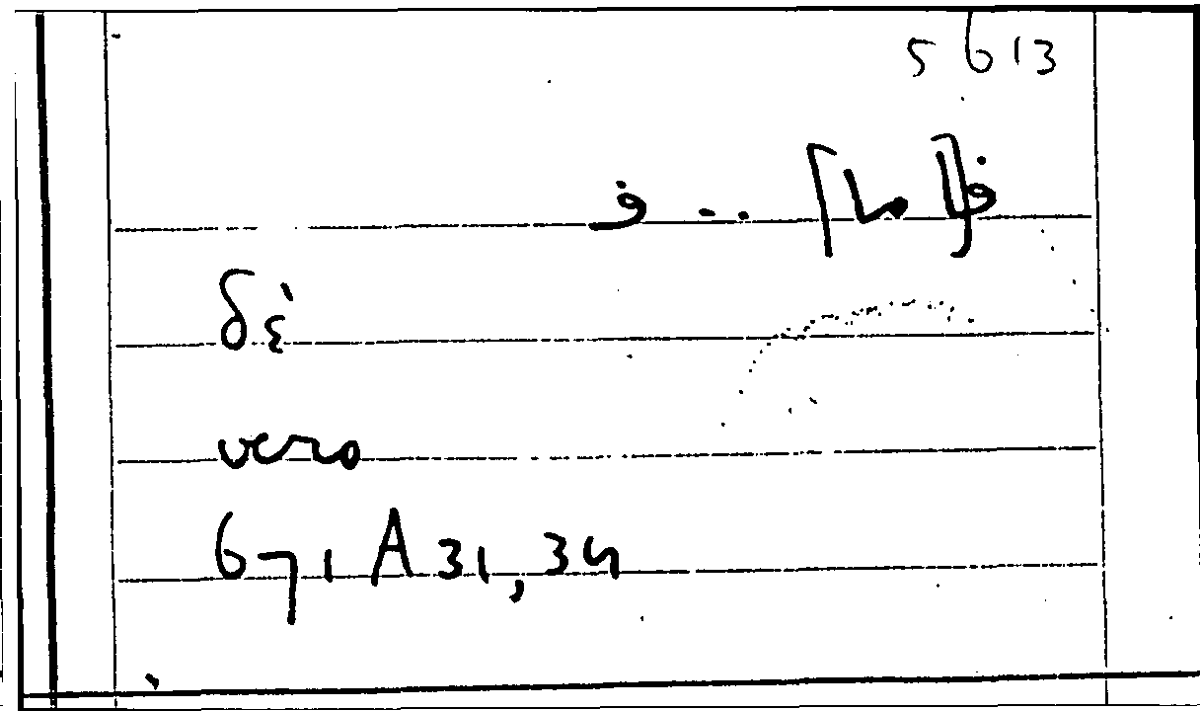 5613
ف[اما] ... ف
δὲ
vero
671 A 31, 34